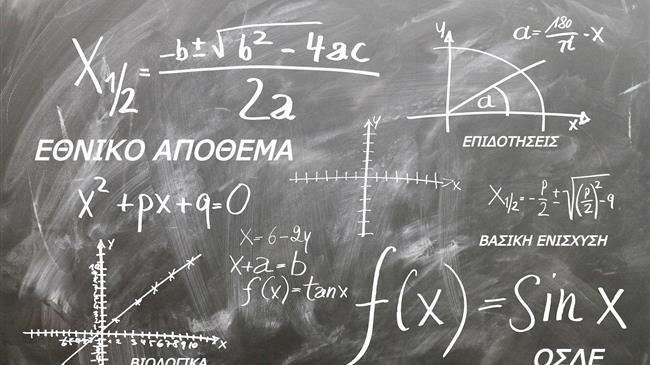 X₁/₂ = (-b ± √(b² - 4ac)) / 2a
a = 180/π · x
y
a
x
ΕΘΝΙΚΟ ΑΠΟΘΕΜΑ
ΕΠΙΔΟΤΗΣΕΙΣ
y
x
x² + px + q = 0
X₁/₂ = -p/2 ± √((p/2)² - q)
ΒΑΣΙΚΗ ΕΝΙΣΧΥΣΗ
x = 6 - 2y
x + a = b
f(x) = tan x
f(x) = Sin x
y
x
ΒΙΟΛΟΓΙΚΑ
ΟΣΔΕ